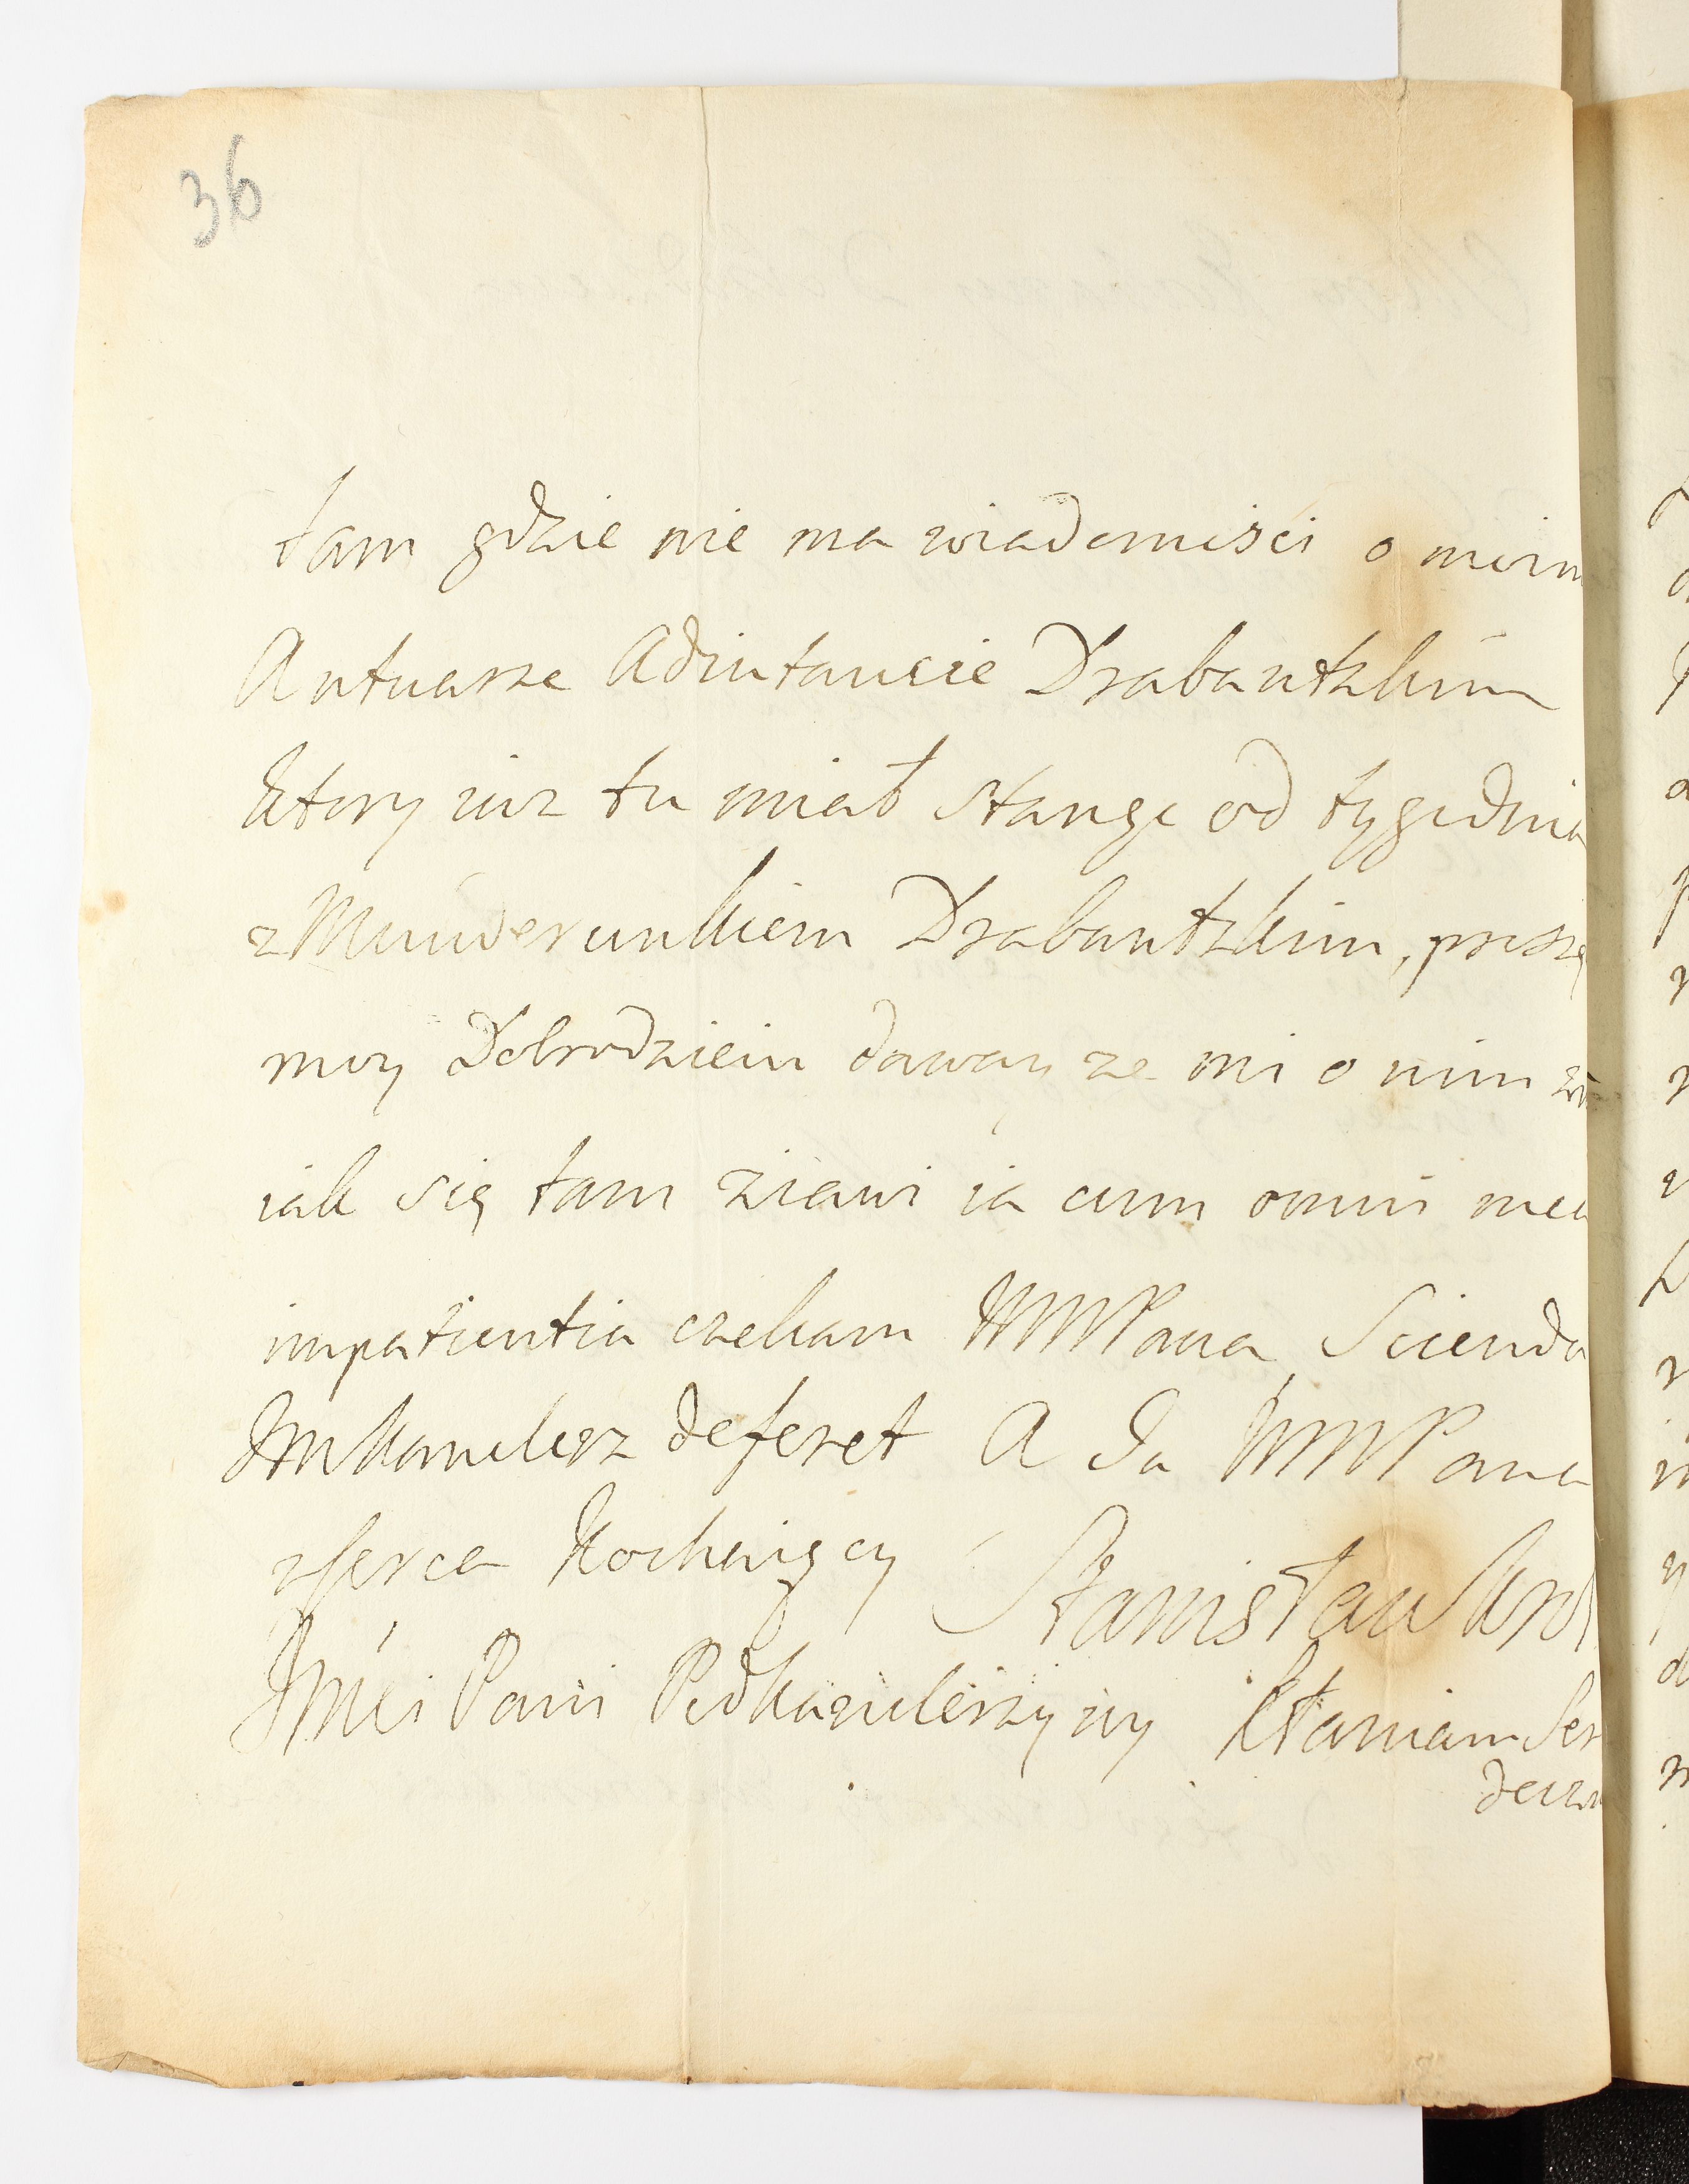 36
tam gdzie nie ma wiadomości o moim
Antuarze Adiutancie Drabantzkim
ktory iuz tu miał stange od tygodnia
z Munderunkiem Drabantzkim, proszę
moy Dobrodzieiu daway ze mi o nim
iak się tam ziawi ia cum omni mea
impatientia czekam WMMPana, Scienda
JMKanclerz deferet A Ja WMMPana
zserca Kochaiący Stanisław Krol
JMćiPani Podkanclerzyny kłaniam Ser
deczn